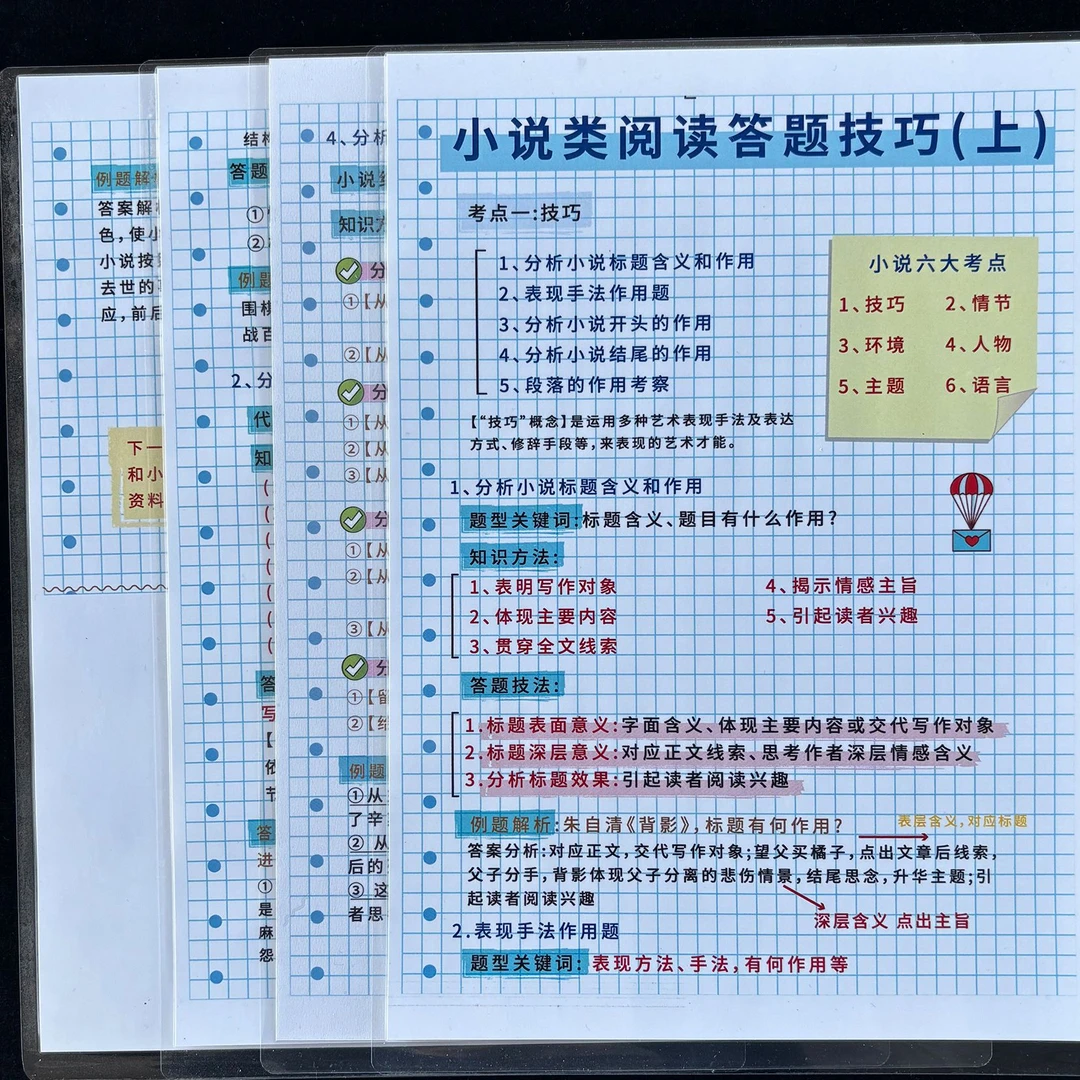 小说类阅读答题技巧(上)
考点一:技巧
1、分析小说标题含义和作用
2、表现手法作用题
3、分析小说开头的作用
4、分析小说结尾的作用
5、段落的作用考察
【“技巧”概念】是运用多种艺术表现手法及表达
方式、修辞手段等,来表现的艺术才能。
小说六大考点
1、技巧 2、情节
3、环境 4、人物
5、主题 6、语言
1、分析小说标题含义和作用
题型关键词:标题含义、题目有什么作用?
知识方法:
1、表明写作对象
2、体现主要内容
3、贯穿全文线索
4、揭示情感主旨
5、引起读者兴趣
答题技法:
1.标题表面意义:字面含义、体现主要内容或交代写作对象
2.标题深层意义:对应正文线索、思考作者深层情感含义
3.分析标题效果:引起读者阅读兴趣
例题解析:朱自清《背影》,标题有何作用?
表层含义,对应标题
答案分析:对应正文,交代写作对象;望父买橘子,点出文章后线索,
父子分手,背影体现父子分离的悲伤情景,结尾思念,升华主题;引
起读者阅读兴趣
深层含义 点出主旨
2.表现手法作用题
题型关键词:表现方法、手法,有何作用等
4、分析
小说
知识方
①【从
②【从
①【从
②【从
③【从
①【从
②【从
③【从
①【留
②【给
例题
①从
了辛
②从
后的
③这
者思
结构
答题
①
②
例题
围棋
战百
2、分
代
知
答
写
【
依
节
答
进
①
是
麻
怨
例题解
答案解
色,使小
小说按
去世的
应,前后
下一
和小
资料